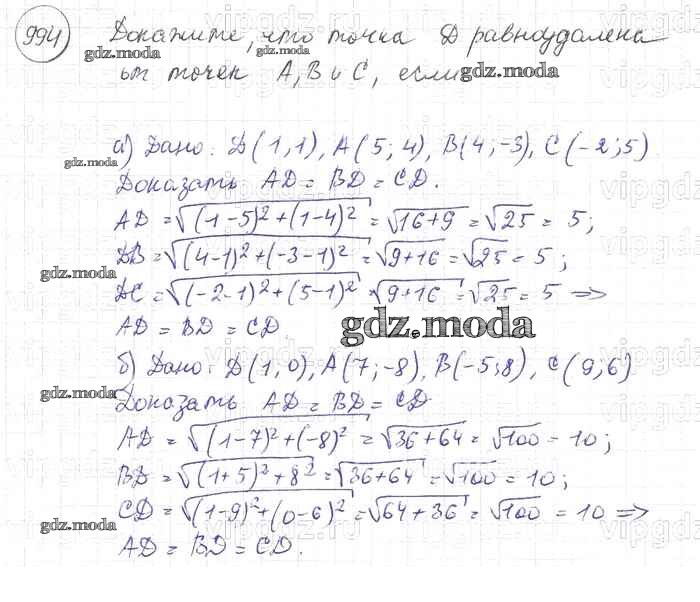 994 Докажите, что точка D равноудалена
от точек A, B и C, если
а) Дано: D(1,1), A(5;4), B(4;-3), C(-2;5)
Доказать AD = BD = CD.
AD = √((1-5)²+(1-4)²) = √(16+9) = √25 = 5;
DB = √((4-1)²+(-3-1)²) = √(9+16) = √25 = 5;
DC = √((-2-1)²+(5-1)²) √(9+16) = √25 = 5 ⇒
AD = BD = CD
б) Дано: D(1,0), A(7;-8), B(-5;8), C(9;6)
Доказать AD = BD = CD
AD = √((1-7)²+(-8)²) = √(36+64) = √100 = 10;
BD = √((1+5)²+8²) = √(36+64) = √100 = 10;
CD = √((1-9)²+(0-6)²) = √(64+36) = √100 = 10 ⇒
AD = BD = CD.
gdz.moda
gdz.moda
gdz.moda
gdz.moda
gdz.moda
gdz.moda
gdz.moda
gdz.moda